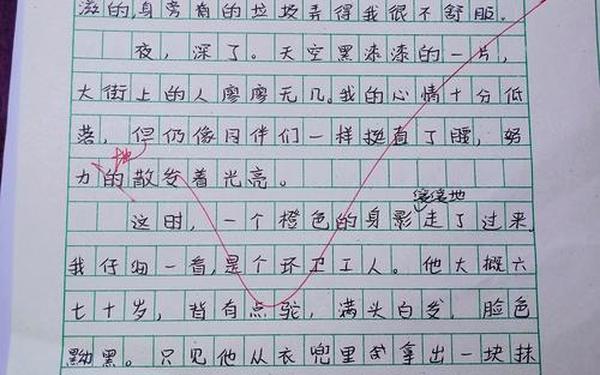 滋的,身旁有的垃圾弄得我很不舒服.
夜,深了。天空黑漆漆的一片,
大街上的人廖廖无几。我的心情十分低
落,但仍像同伴们一样挺直了腰,努
地
力的散发着光亮。
缓缓地
这时,一个橙色的身影走了过来,
我仔细一看,是个环卫工人。他大概六
七十岁,背有点驼,满头白发,脸色
黝黑。只见他从衣兜里拿出一块抹